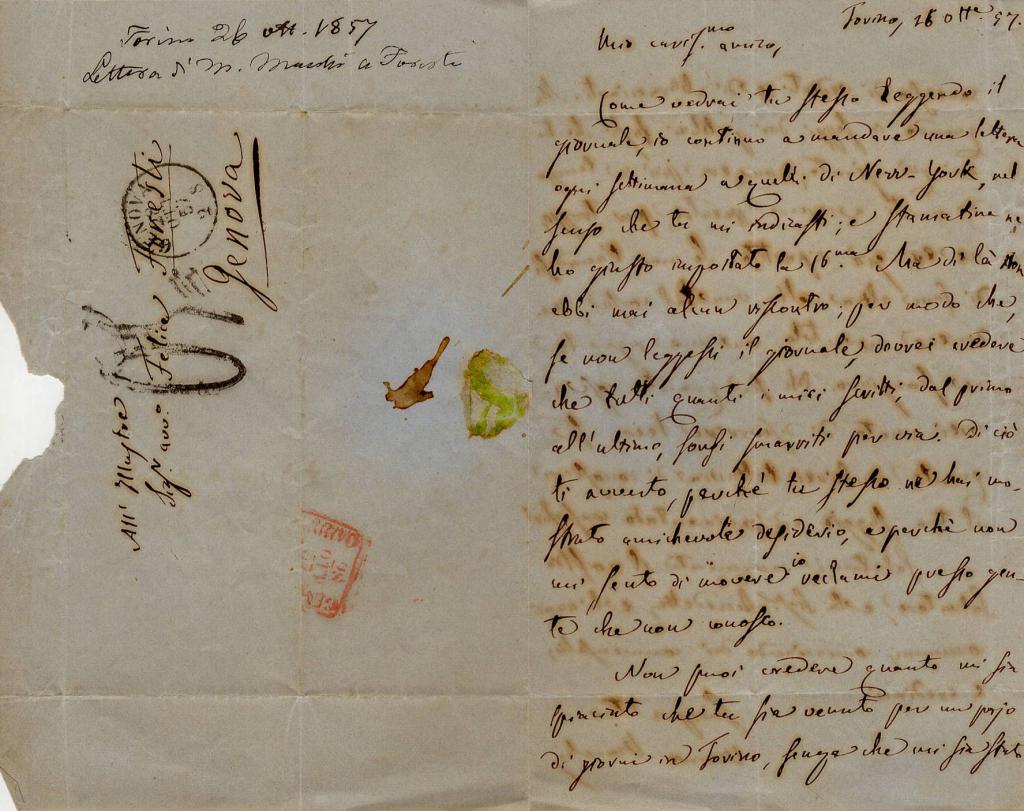 Torino 26 ott. 1857
Lettera di M. Macchi a Foresti
All' Illustre
Sigr. avvo. Felice Foresti
Genova
GENOVA
Torino, 26 otte. 57.
Mio cariss.mo amico,
Come vedrai tu stesso leggendo il
giornale, io continuo a mandare una lettera
ogni settimana a quelli di New-York, nel
senso che tu mi indicasti; e stamattina ne
ho giusto impostato la 16.ma Ma di là non
ebbi mai alcun riscontro; per modo che,
se non leggessi il giornale, dovrei credere
che tutti quanti i miei scritti, dal primo
all'ultimo, sonsi smarriti per via. Di ciò
ti avverto, perchè tu stesso ne hai mo-
strato amichevole desiderio, e perchè non
mi sento di movere io reclami presso gen-
te che non conosco.
Non puoi credere quanto mi sia
spiaciuto che tu sia venuto per un pajo
di giorni in Torino, senza che mi sia stato